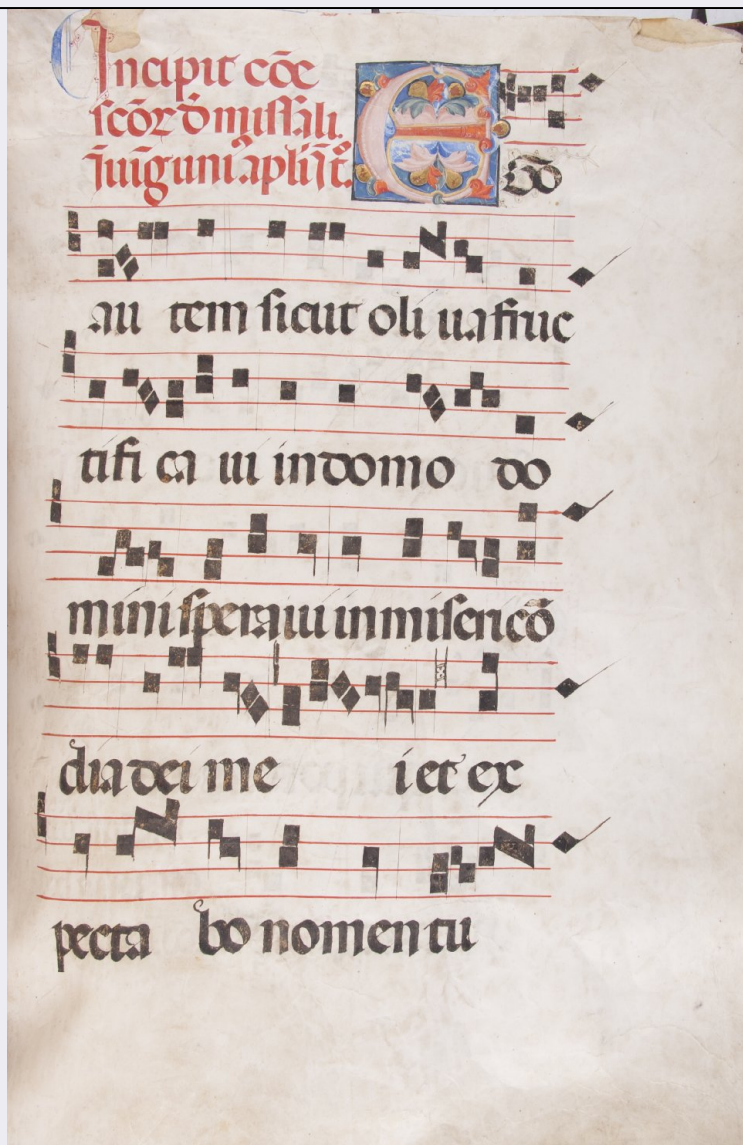 Incipit cōe
scōꝝ ꝺ missali.
ī uiḡ uniꝰ apl̄i īt̄.
EGO
au tem sicut oli ua fruc
tifi ca ui in domo do
mini speraui in miserico᷑
dia dei me i et ex
pecta bo nomen tu